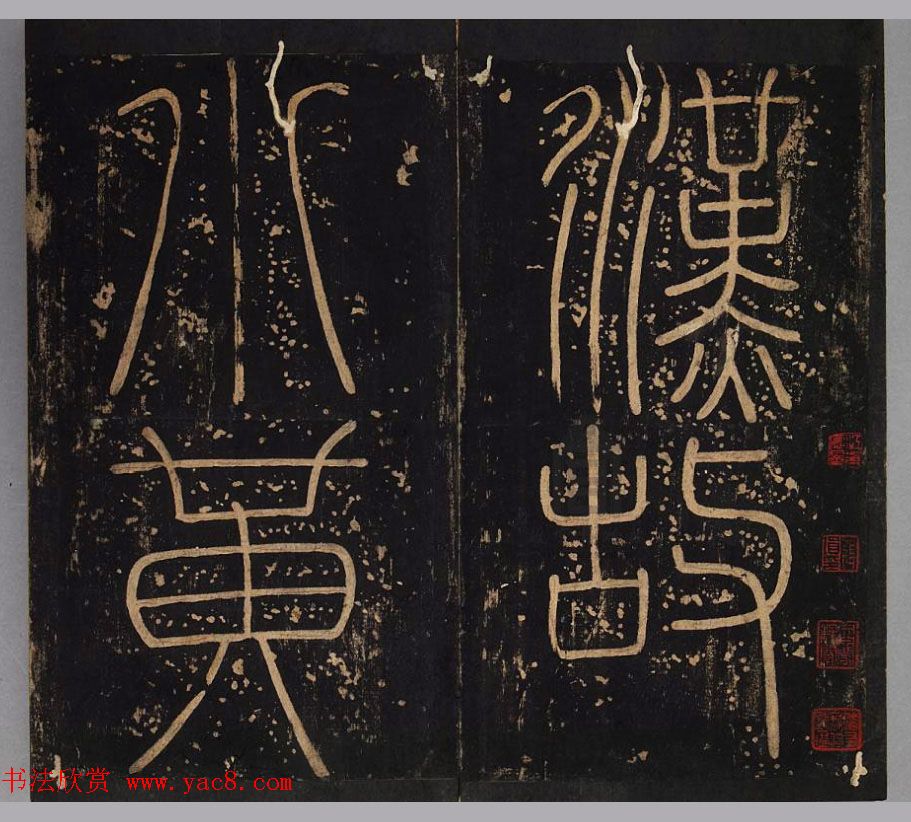 漢故
小黃
书法欣赏 www.yac8.com